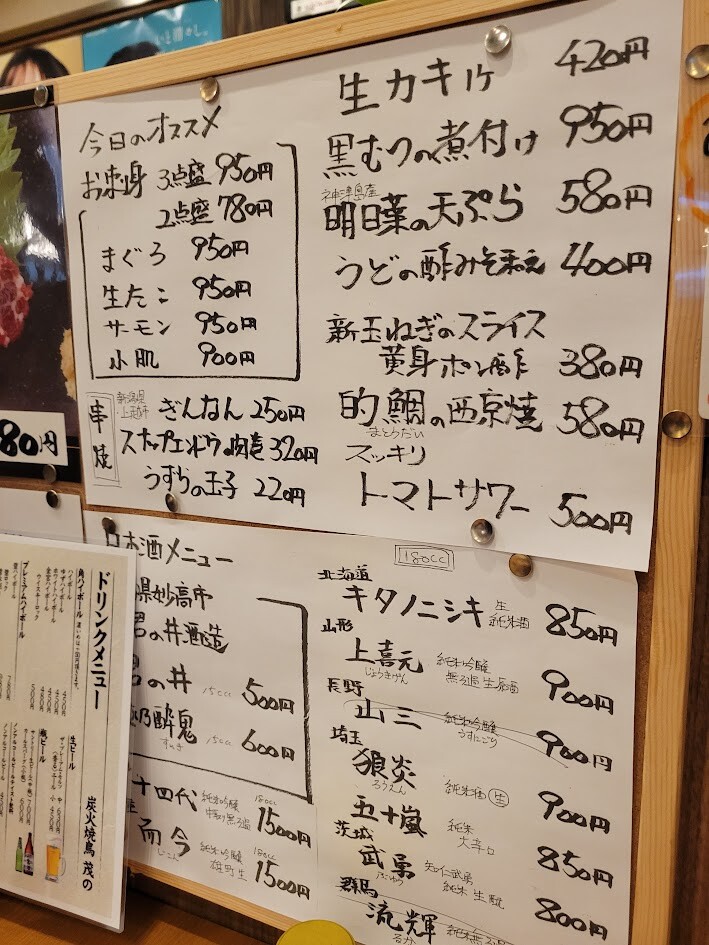 今日のオススメ
お刺身 3点盛 950円
2点盛 780円
まぐろ 950円
生たこ 950円
サーモン 950円
小肌 900円
串焼
新潟県上越市 ぎんなん 250円
スナップエンドウの肉巻 320円
うずらの玉子 220円
生カキ 420円
黒むつの煮付け 950円
神津島産
明日葉の天ぷら 580円
うどの酢みそ和え 400円
新玉ねぎのスライス
黄身ポン酢 380円
的鯛の西京焼 580円
まとうだい
スッキリ
トマトサワー 500円
日本酒メニュー
県妙高市
君の井酒造
君の井 15cc 500円
酔鬼 15cc 600円
すいき
十四代 純米吟醸 180cc 1500円
而今 純米吟醸 雄町生 180cc 1500円
じこん
180cc
北海道
キタノニシキ 生 純米酒 850円
山形
上喜元 純米吟醸 無ろ過生原酒 900円
じょうきげん
長野
山三 純米吟醸 うすにごり 900円
埼玉
狼炎 純米酒 生 900円
ろうえん
五十嵐 純米 大辛口 850円
茨城
武勇 知仁武勇 純米 生 800円
ぶゆう
群馬
流輝
るか
80円
ドリンクメニュー
炭火焼鳥 茂の
角ハイボール
プレミアムハイボール
生ビール
瓶ビール